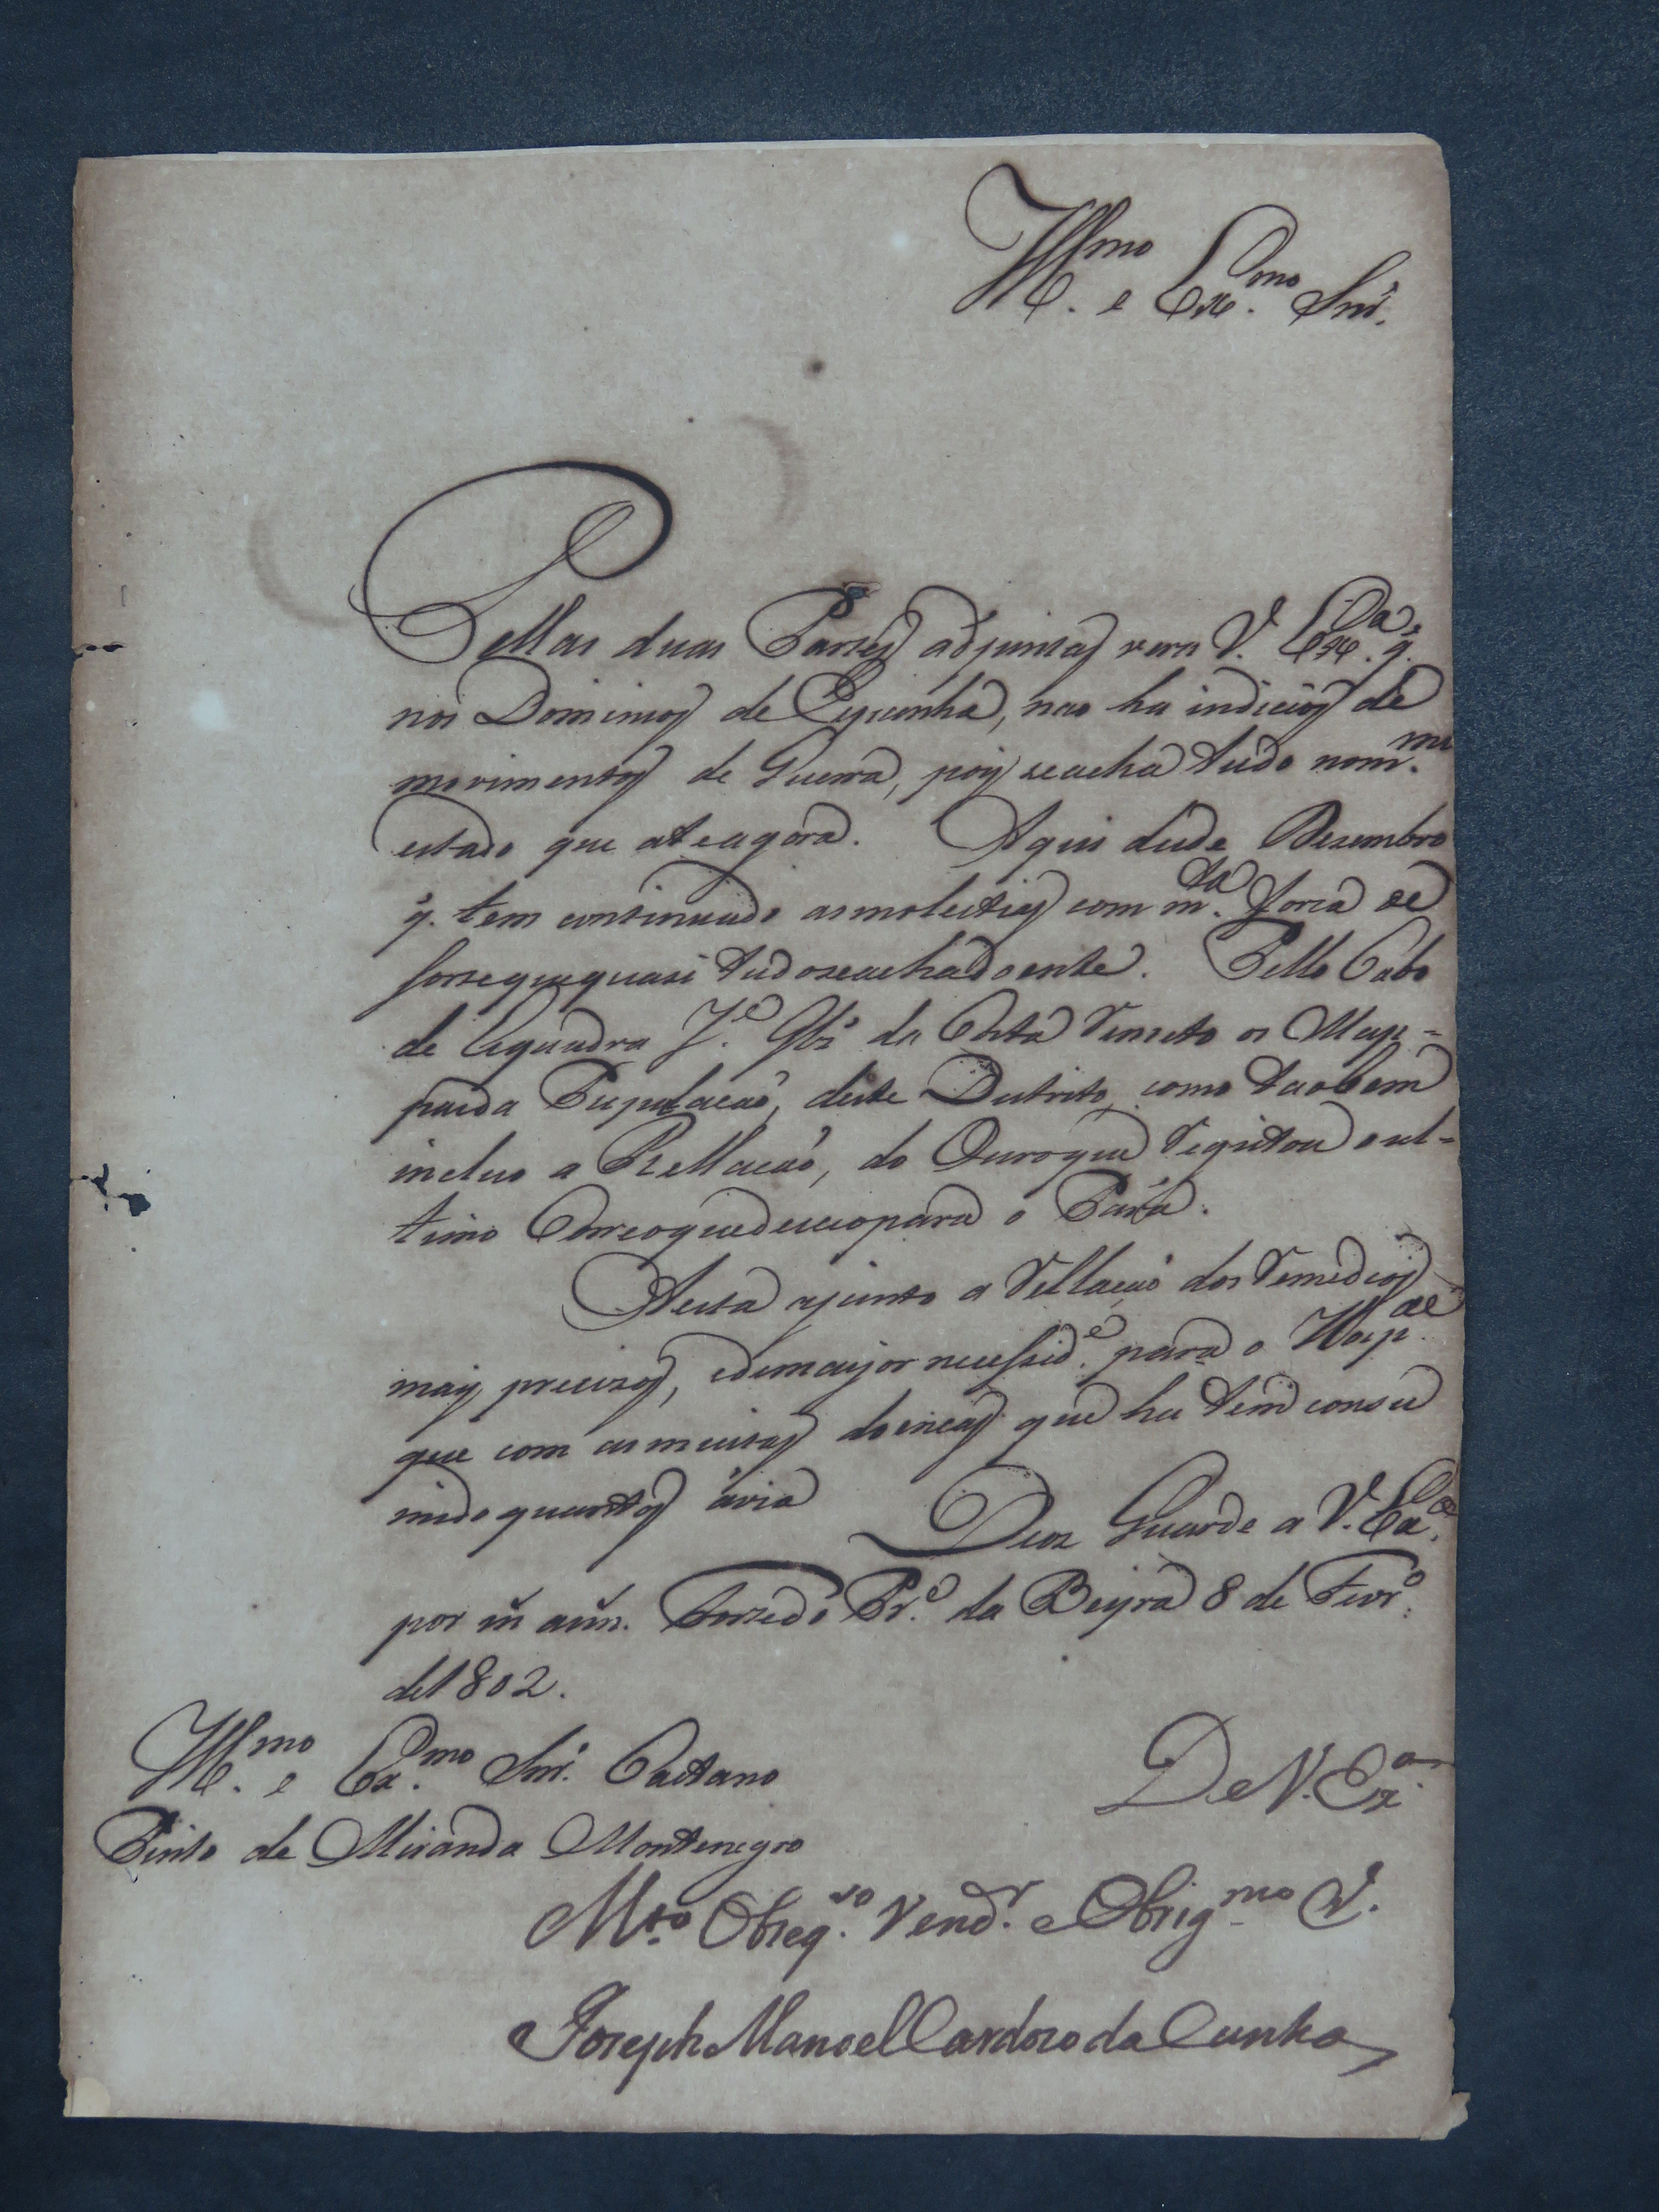 Illmo. e Exmo. Snr.
Pellas duas Partes adjuntas verá V. Exa. q.
nos Dominios de Espanha, nao ha indicios de
movimentos de Guerra, pois seacha tudo nomm.
estado que ateagora. Aqui desde Dezembro
q. tem continuado asmolestias com mta. forca de
sortequequasi tudoseachadoente. Pello Cabo
de Esquadra Je. Glz da Costa Remeto os Map=
pasda Pupulacaó, deste Distrito, como taobem
incluo a Rellacaó, do Ouroque Registou o ul=
timo Correoquedesceopara o Pará.
Nesta ajunto a Rellacaó dos Remedios
mais precizos, edemayor necesside. para o Hosp.al
que com asmuitas doencas que ha tem consu
mido quantos avia Deos Guarde a V. Exa.
por m. ann. Forte do Pr.e da Beyra 8 de Fevr.o
de1802.
Illmo. e Exmo. Snr. Caetano
Pinto de Miranda Montenegro
De V. Exa.
Mto. Obseq.so Vend.r e Obrig.mo C.
Joseph Manoel Cardozo da Cunha